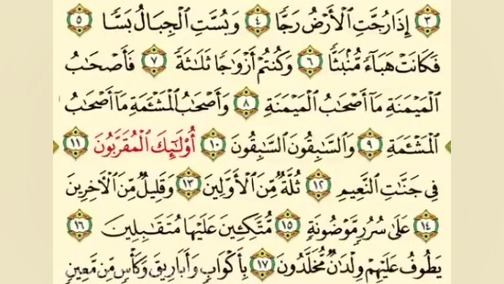 ٣ إِذَا رُجَّتِ ٱلْأَرْضُ رَجًّا ٤ وَبُسَّتِ ٱلْجِبَالُ بَسًّا ٥
فَكَانَتْ هَبَآءً مُّنۢبَثًّا ٦ وَكُنتُمْ أَزْوَٰجًا ثَلَٰثَةً ٧ فَأَصْحَٰبُ
ٱلْمَيْمَنَةِ مَآ أَصْحَٰبُ ٱلْمَيْمَنَةِ ٨ وَأَصْحَٰبُ ٱلْمَشْـَٔمَةِ مَآ أَصْحَٰبُ
ٱلْمَشْـَٔمَةِ ٩ وَٱلسَّٰبِقُونَ ٱلسَّٰبِقُونَ ١٠ أُو۟لَٰٓئِكَ ٱلْمُقَرَّبُونَ ١١
فِى جَنَّٰتِ ٱلنَّعِيمِ ١٢ ثُلَّةٌ مِّنَ ٱلْأَوَّلِينَ ١٣ وَقَلِيلٌ مِّنَ ٱلْءَاخِرِينَ
١٤ عَلَىٰ سُرُرٍ مَّوْضُونَةٍ ١٥ مُّتَّكِـِٔينَ عَلَيْهَا مُتَقَٰبِلِينَ ١٦
يَطُوفُ عَلَيْهِمْ وِلْدَٰنٌ مُّخَلَّدُونَ ١٧ بِأَكْوَابٍ وَأَبَارِيقَ وَكَأْسٍ مِّن مَّعِينٍ